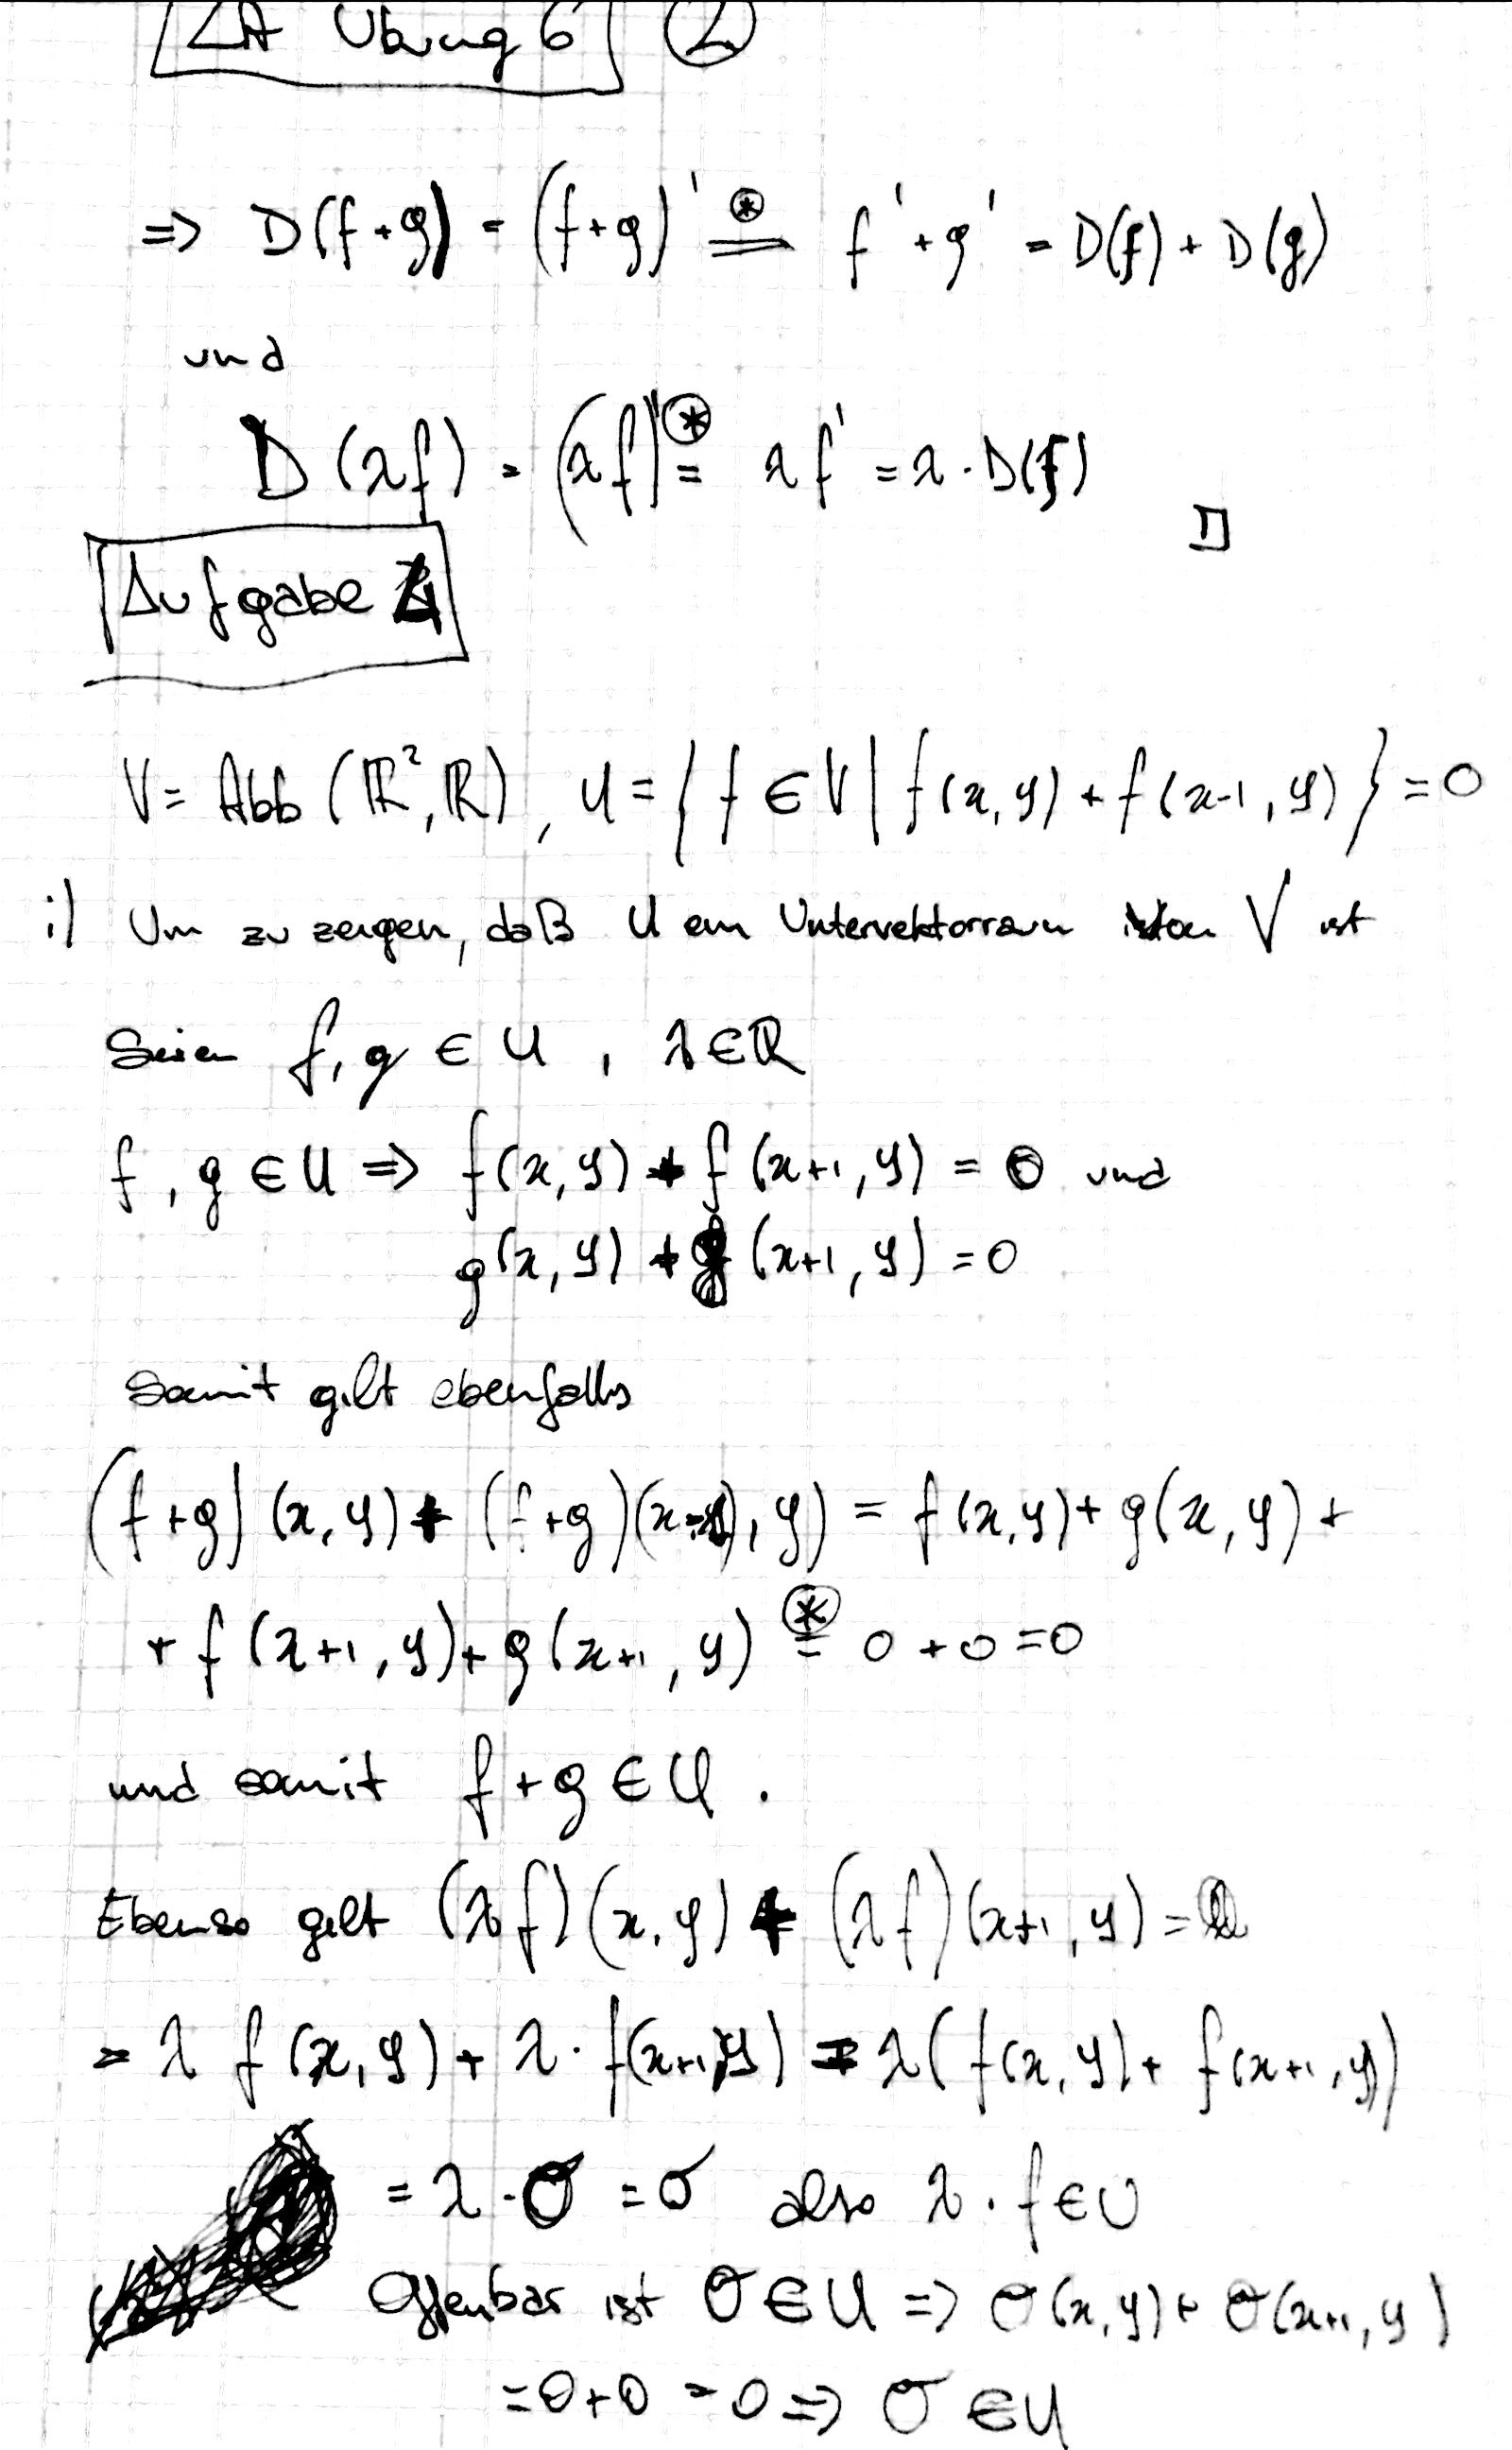 LA Übung 6 ②
=> D(f+g) = (f+g)' ⊛= f' + g' = D(f) + D(g)
und
D(λf) = (λf)' ⊛= λf' = λ · D(f)
□
Aufgabe 4
V = Abb(ℝ², ℝ), U = { f ∈ V | f(x,y) + f(x-1, y) } = 0
i) Um zu zeigen, daß U ein Untervektorraum von V ist
Seien f, g ∈ U, λ ∈ ℝ
f, g ∈ U => f(x,y) + f(x+1, y) = 0 und
g(x,y) + g(x+1, y) = 0
Somit gilt ebenfalls
(f+g)(x,y) + (f+g)(x+1, y) = f(x,y) + g(x,y) +
+ f(x+1, y) + g(x+1, y) ⊛= 0 + 0 = 0
und somit f + g ∈ U.
Ebenso gilt (λf)(x,y) + (λf)(x+1, y) =
= λ f(x,y) + λ · f(x+1, y) = λ(f(x,y) + f(x+1, y))
= λ · O = O also λ · f ∈ U
Offenbar ist O ∈ U => O(x,y) + O(x+1, y)
= 0 + 0 = 0 => O ∈ U